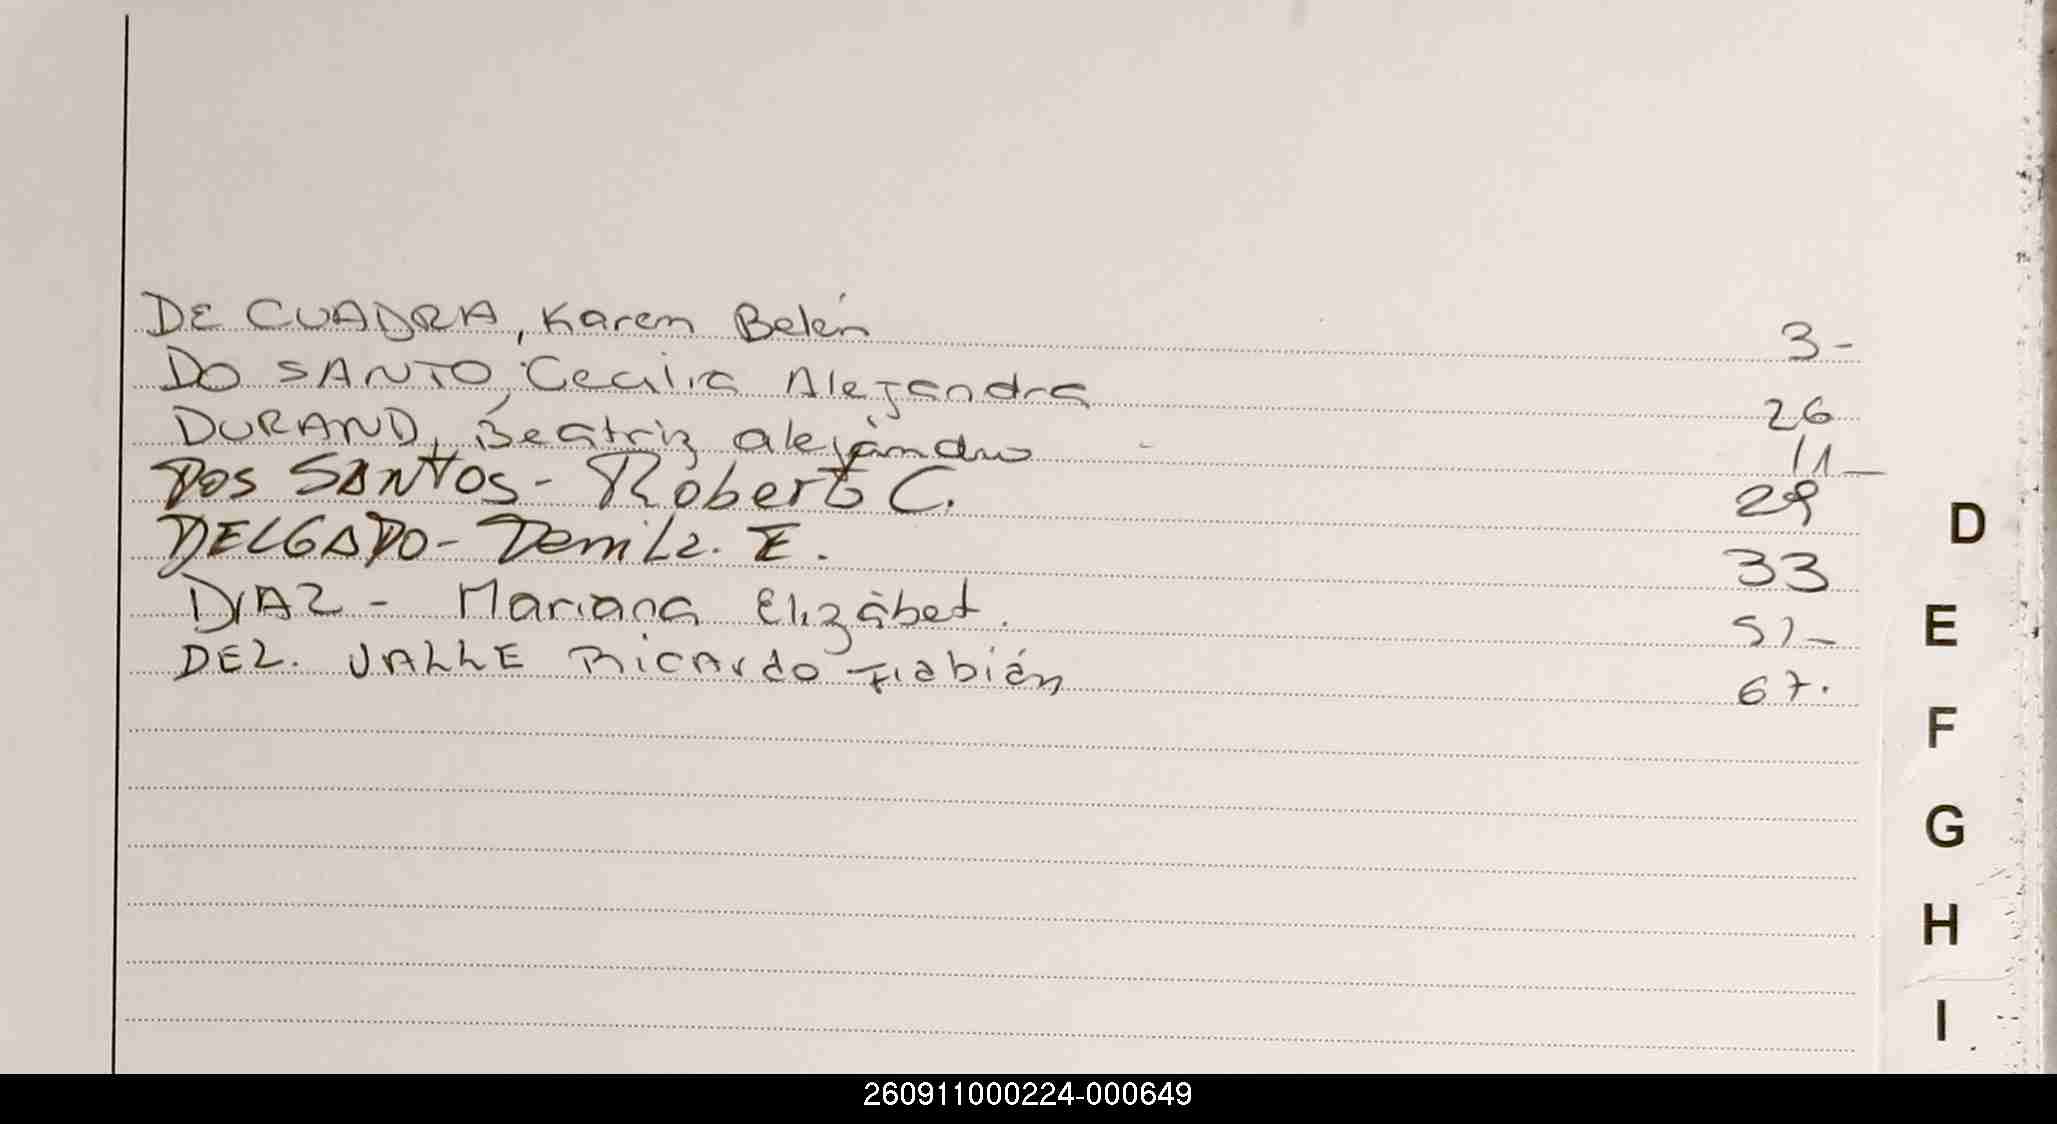 DE CUADRA, Karem Belén 3-
DO SANTO, Cecilia Alejandra 26
DURAND, Beatriz alejandra 11-
DOS SANTOS - Roberto C. 29
DELGADO - Demila. E. 33
DIAZ - Mariana Elizábet. 51-
DEL. VALLE Ricardo Fabián 67.
D
E
F
G
H
I
260911000224-000649